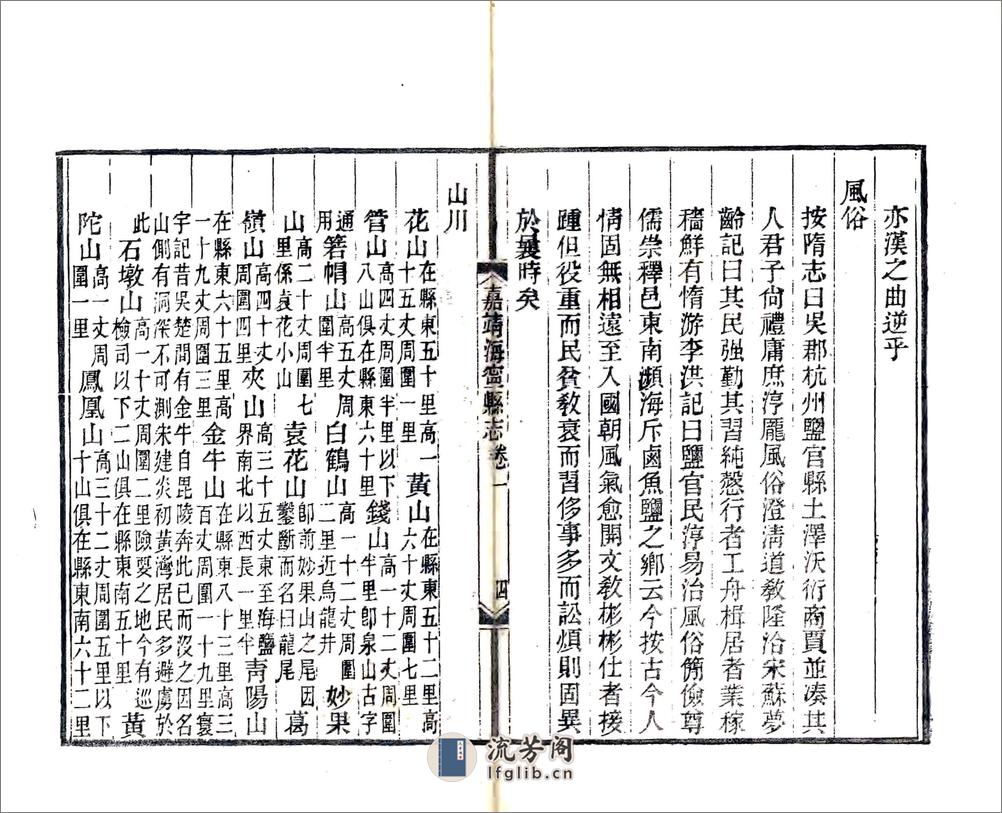 亦漢之曲逆乎
風俗
按隋志曰吳郡杭州鹽官縣土澤沃衍商賈並湊其
人君子尙禮庸庶淳龐風俗澄淸道敎隆洽宋蘇夢
齡記曰其民强勤其習純慤行者工舟楫居者業稼
穡鮮有惰游李洪記曰鹽官民淳易治風俗簡儉尊
儒崇釋邑東南瀕海斥鹵魚鹽之鄉云今按古今人
情固無相遠至入國朝風氣愈開文敎彬彬仕者接
踵但役重而民貧敎衰而習侈事多而訟煩則固異
於曩時矣
嘉靖海寧縣志 卷一 四
山川
花山在縣東五十里高一十五丈周圍一里 黃山在縣東五十二里高六十丈周圍七里
管山高四丈周半里以下八山俱在縣東六十里 錢山高一十二丈周圍半里卽泉山古字
通用 箬帽山高五丈周圍半里 白鶴山高一十二丈周圍二里近烏龍井 妙果
山高二十丈周圍七里係袁花小山 袁花山卽前妙果山之尾因鑿斷而名曰龍尾 葛
嶺山高四十丈周圍四里 夾山高三十五丈東至海鹽界南北以西長一里半 靑陽山
在縣東六十五里高一十九丈周圍三里 金牛山在縣東八十三里高三百丈周圍一十九里寰
宇記昔吳楚間有金牛自毘陵奔此已而沒之因名山側有洞深不可測宋建炎初黃灣居民多避虜於
此 石墩山高一十丈周圍二里險要之地今有巡檢司以下二山俱在縣東南五十里 黃
陀山高一丈周圍一里 鳳凰山高三十二丈周圍五里以下十山俱在縣東南六十二里
流芳阁
lfglib.cn